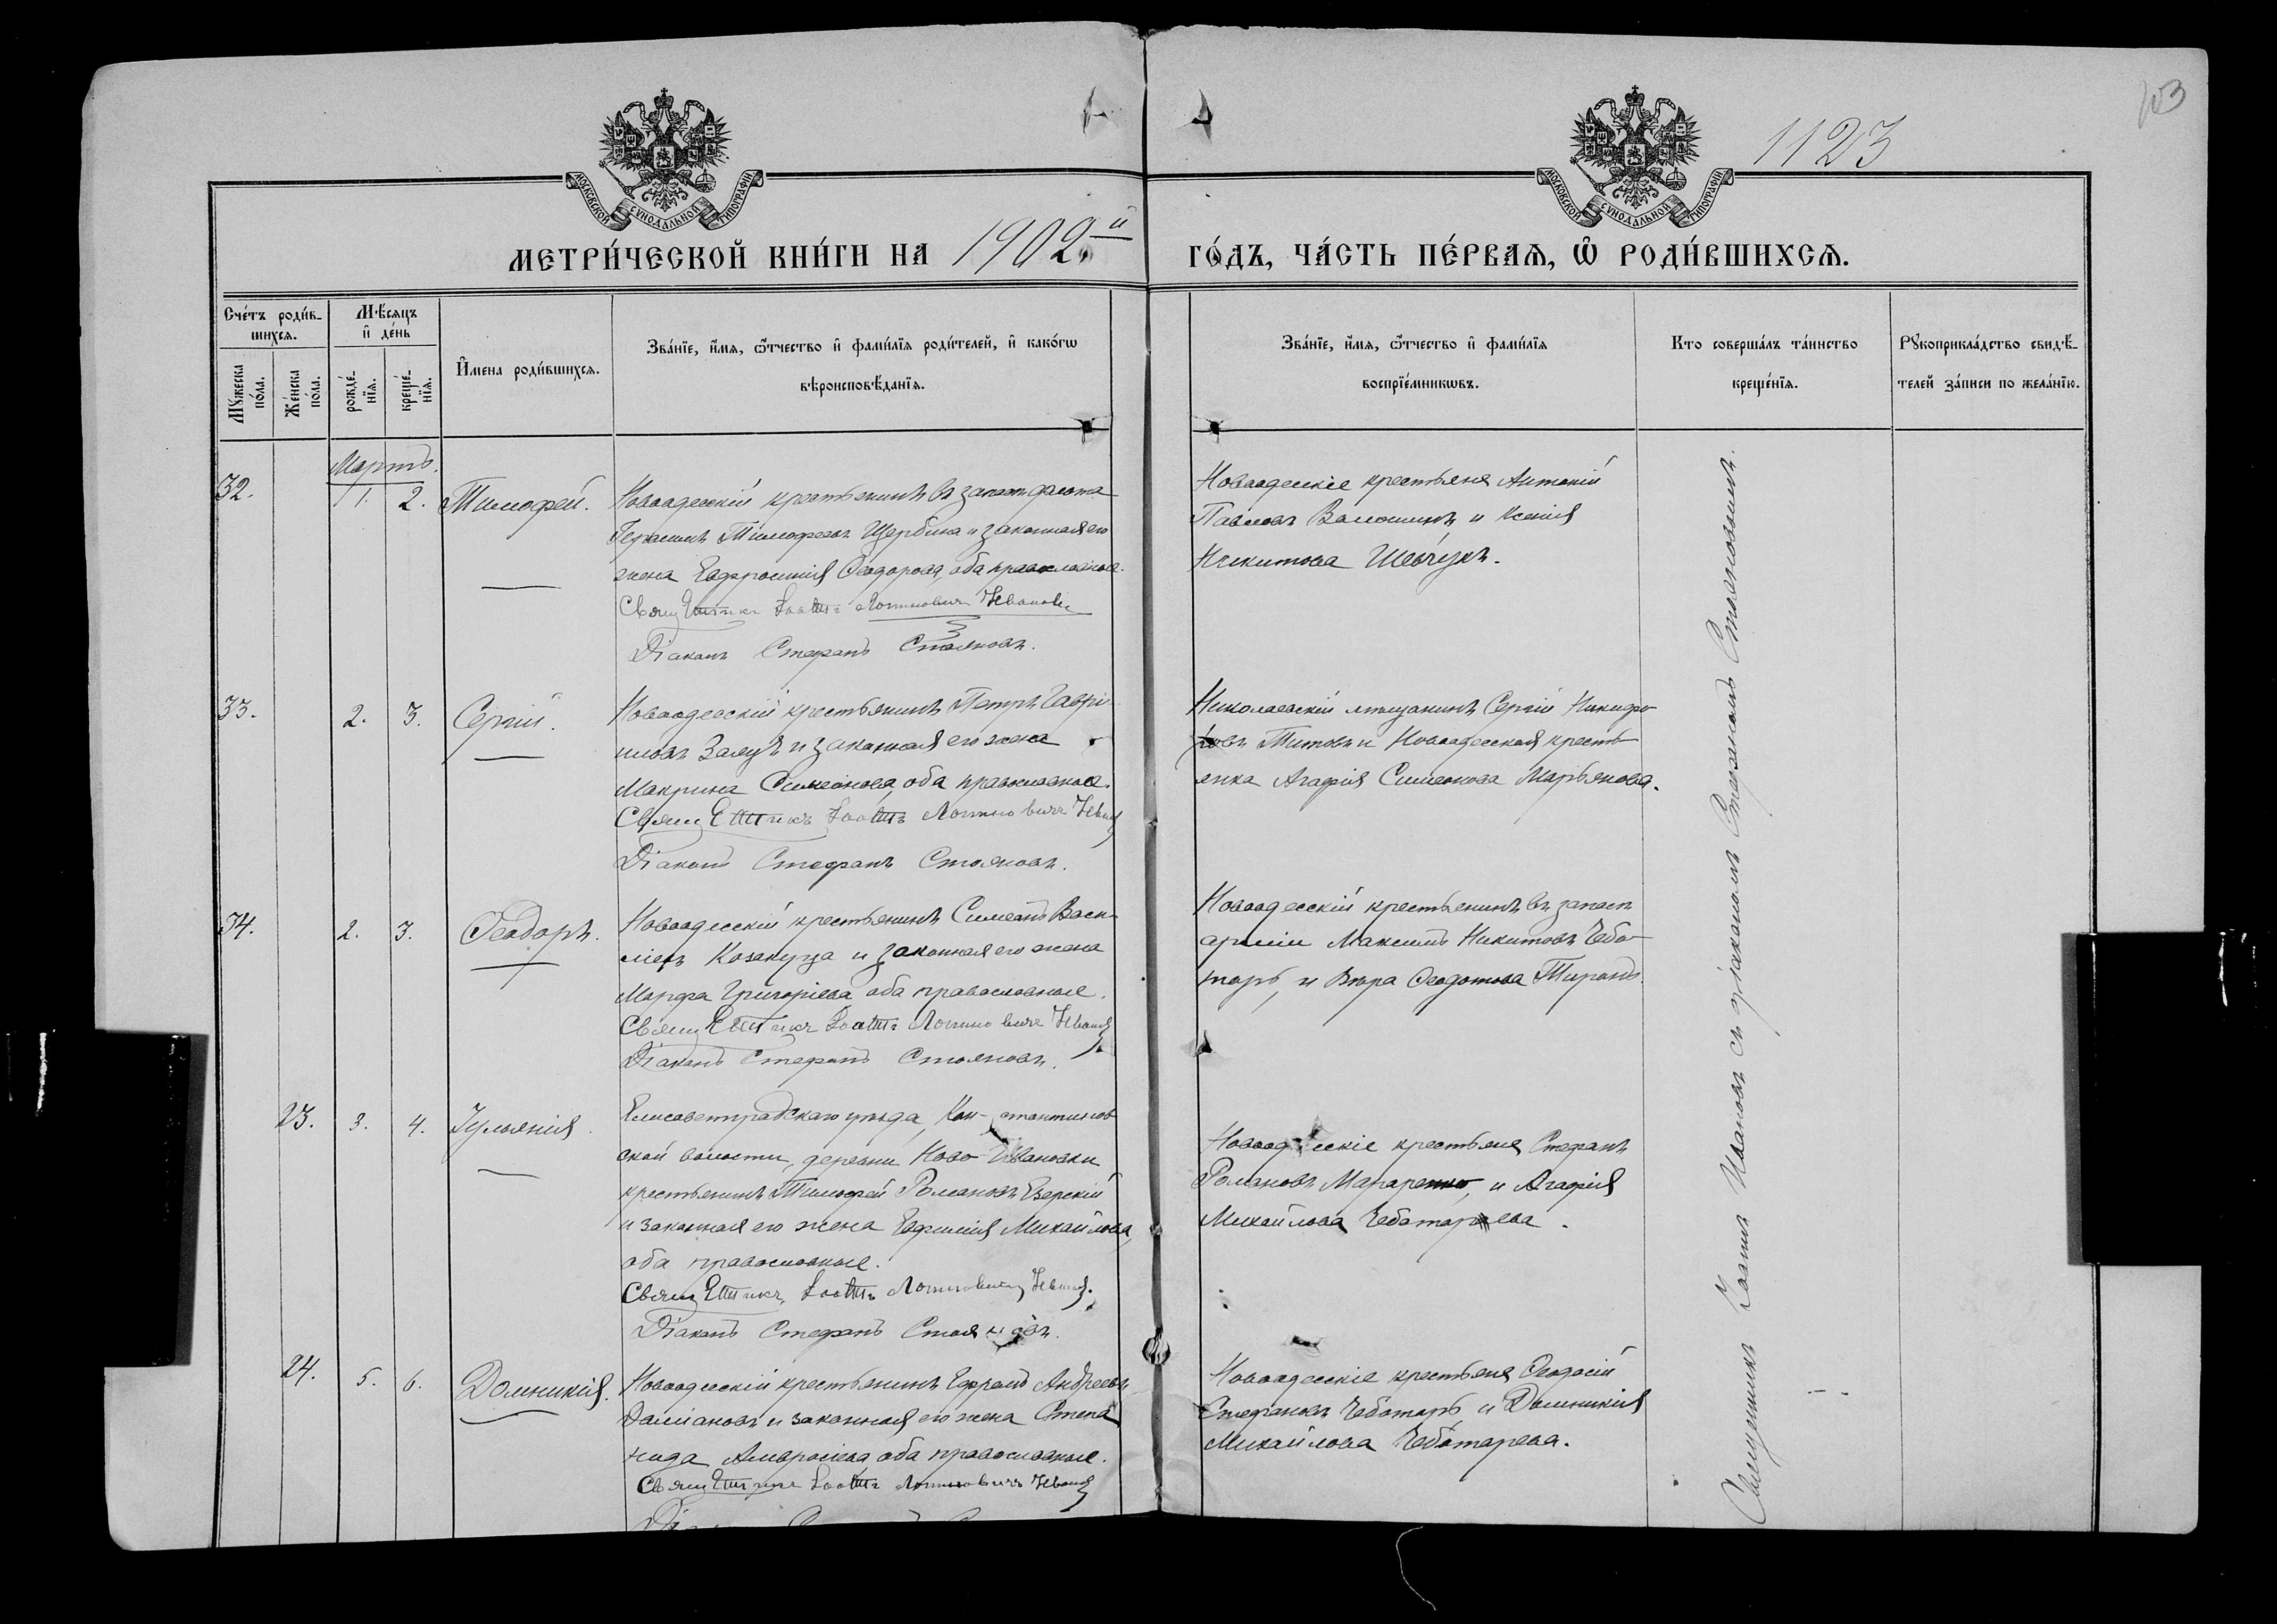 1123
103
МОСКОВСКОЙ СѴНОДАЛЬНОЙ ТИПОГРАФІИ
МОСКОВСКОЙ СѴНОДАЛЬНОЙ ТИПОГРАФІИ
МЕТРИ́ЧЕСКОЙ КНИ́ГИ НА 1902.й ГО́ДЪ, ЧА́СТЬ ПЕ́РВАѦ, Ѽ РОДИ́ВШИХСѦ.
Сче́тъ роди́в-
шихсѧ.
Мꙋжеска по́ла.
Же́нска по́ла.
Мѣ́сѧцъ и҆ де́нь
рожде́-
нїѧ.
креще́-
нїѧ.
И҆мена роди́вшихсѧ.
Зва́нїе, и҆́мѧ, ѻ҆́тчество и҆ фами́лїѧ роди́телей, и҆ како́гѡ
вѣроисповѣ́данїѧ.
Зва́нїе, и҆́мѧ, ѻ҆́тчество и҆ фами́лїѧ
воспрїе́мникѡвъ.
Кто соверша́лъ та́инство
креще́нїѧ.
Рꙋкоприкла́дство свидѣ́-
телей за́писи по жела́нїю.
Мартъ.
32.
1. 2. Тимофей.
Новоодесскій крестьянинъ въ запасѣ флота
Герасимъ Тимофеевъ Щербина и законная его
жена Евфросинія Ѳеодорова, оба православные.
Священникъ Іоаннъ Логиновичъ Ивановъ
Діаконъ Стефанъ Стояновъ.
Новоодесскіе крестьяне Антоній
Павловъ Волошинъ и Ксенія
Никитова Шевчукъ.
33.
2. 3. Сергій.
Новоодесскій крестьянинъ Петръ Гаврі
иловъ Заяцъ и законная его жена
Макрина Симеонова, оба православные.
Священникъ Іоаннъ Логиновичъ Ивановъ
Діаконъ Стефанъ Стояновъ.
Николаевскій мѣщанинъ Сергій Никифо
ровъ Титовъ и Новоодесская кресть-
янка Агафія Симеонова Марьянова.
34.
2. 3. Ѳеодоръ.
Новоодесскій крестьянинъ Симеонъ Васи-
ліевъ Козакуца и законная его жена
Марфа Григоріева оба православные.
Священникъ Іоаннъ Логиновичъ Ивановъ
Діаконъ Стефанъ Стояновъ.
Новоодесскій крестьянинъ въ запасѣ
арміи Максимъ Никитовъ Чебо-
тарь, и Вѣра Ѳеодотова Тиронъ.
23. 3. 4. Іуліанія.
Елисаветградскаго уѣзда, Кон-стантинов
ской волости, деревни Ново-Ивановки
крестьянинъ Тимофей Романовъ Езерскій
и законная его жена Евфимія Михайлова,
оба православные.
Священникъ Іоаннъ Логиновичъ Ивановъ.
Діаконъ Стефанъ Стояновъ.
Новоодесскіе крестьяне Стефанъ
Романовъ Макаренко, и Агафія
Михайлова Чеботарева.
24. 5. 6. Домникія.
Новоодесскій крестьянинъ Ефремъ Андреевъ
Даміановъ и законная его жена Степа
нида Амвросіева оба православные.
Священникъ Іоаннъ Логиновичъ Ивановъ
Новоодесскіе крестьяне Ѳеодосій
Стефановъ Чеботарь, и Домникія
Михайлова Чеботарева.
Священникъ Іоаннъ Ивановъ съ діакономъ Стефаномъ Стояновымъ.